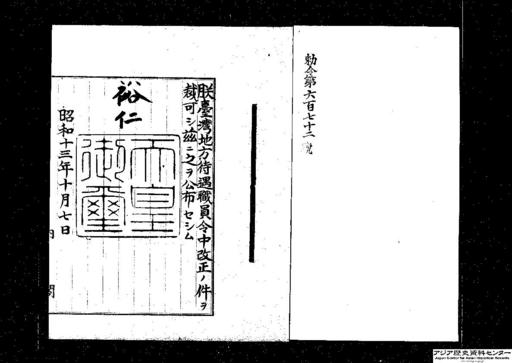 勅令第六百七十二号
朕臺灣地方待遇職員令中改正ノ件ヲ
裁可シ茲ニ之ヲ公布セシム
裕仁
天皇御璽
昭和十三年十月七日
内閣
アジア歴史資料センター
Japan Center for Asian Historical Records